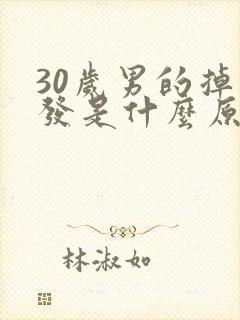 30歲男的掉
發是什麼原
林淑如